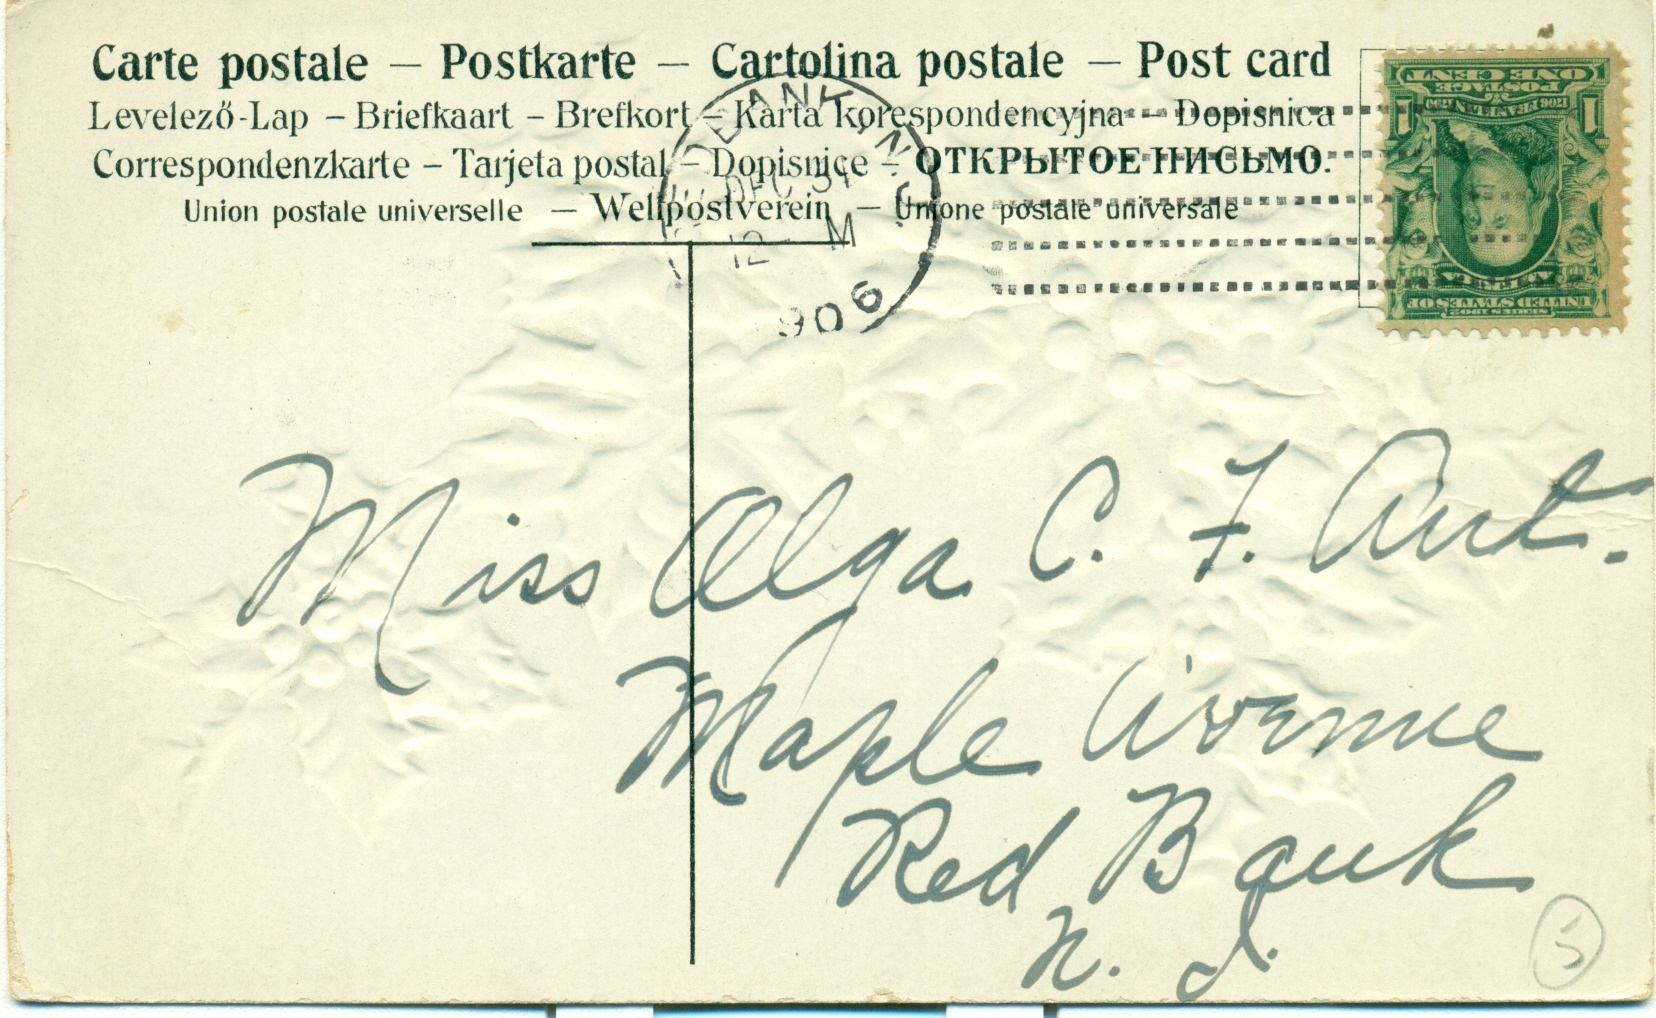 Carte postale — Postkarte — Cartolina postale — Post card
Levelező-Lap – Briefkaart – Brefkort – Karta korespondencyjna – Dopisnica
Correspondenzkarte – Tarjeta postal – Dopisnice – ОТКРЫТОЕ ПИСЬМО.
Union postale universelle — Weltpostverein — Unione postale universale
RED BANK, N.J.
DEC 31
12 - M
1906
ONE CENT
POSTAGE
FRANKLIN
1706 1790
1 1
AMERICA
UNITED STATES OF
SERIES 1902
Miss Olga C. F. Aut.
Maple Avenue
Red Bank
N. J.
5